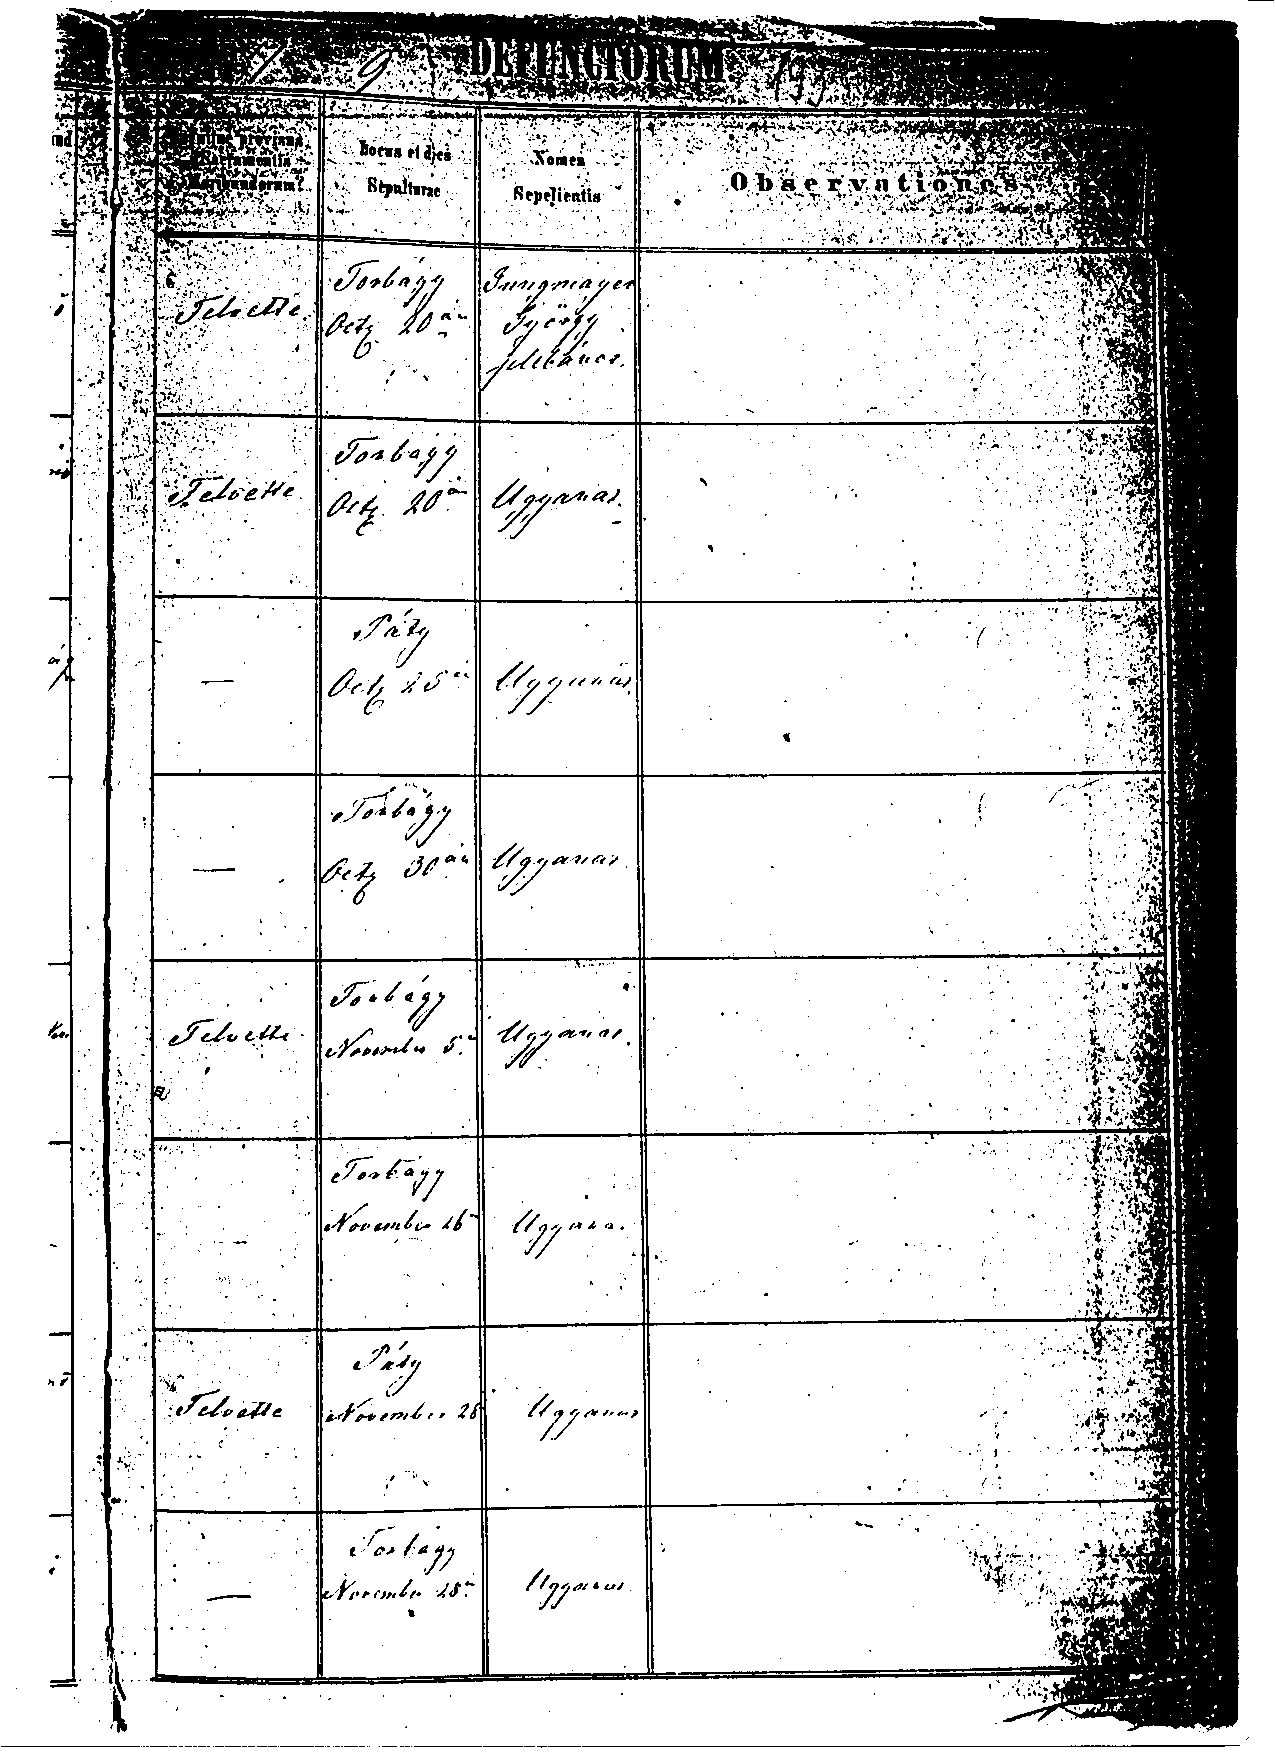 9
DEFUNCTORUM
provisus
Sacramentis
Moribundorum?
Locus et dies
Sepulturae
Nomen
Sepelientis
Observationes
Felvette.
Torbágy
Oct. 20án
Jungmayer
György
plébános.
Felvette
Torbágy
Oct. 20án
Ugyanaz.
—
Páty
Oct. 25én
Ugyanaz.
—
Torbágy
Oct. 30án
Ugyanaz
Felvette
Torbágy
November 5én
Ugyanaz.
—
Torbágy
November 26
Ugyanaz.
Felvette
Páty
November 28
Ugyanaz
—
Torbágy
November 28
Ugyanaz